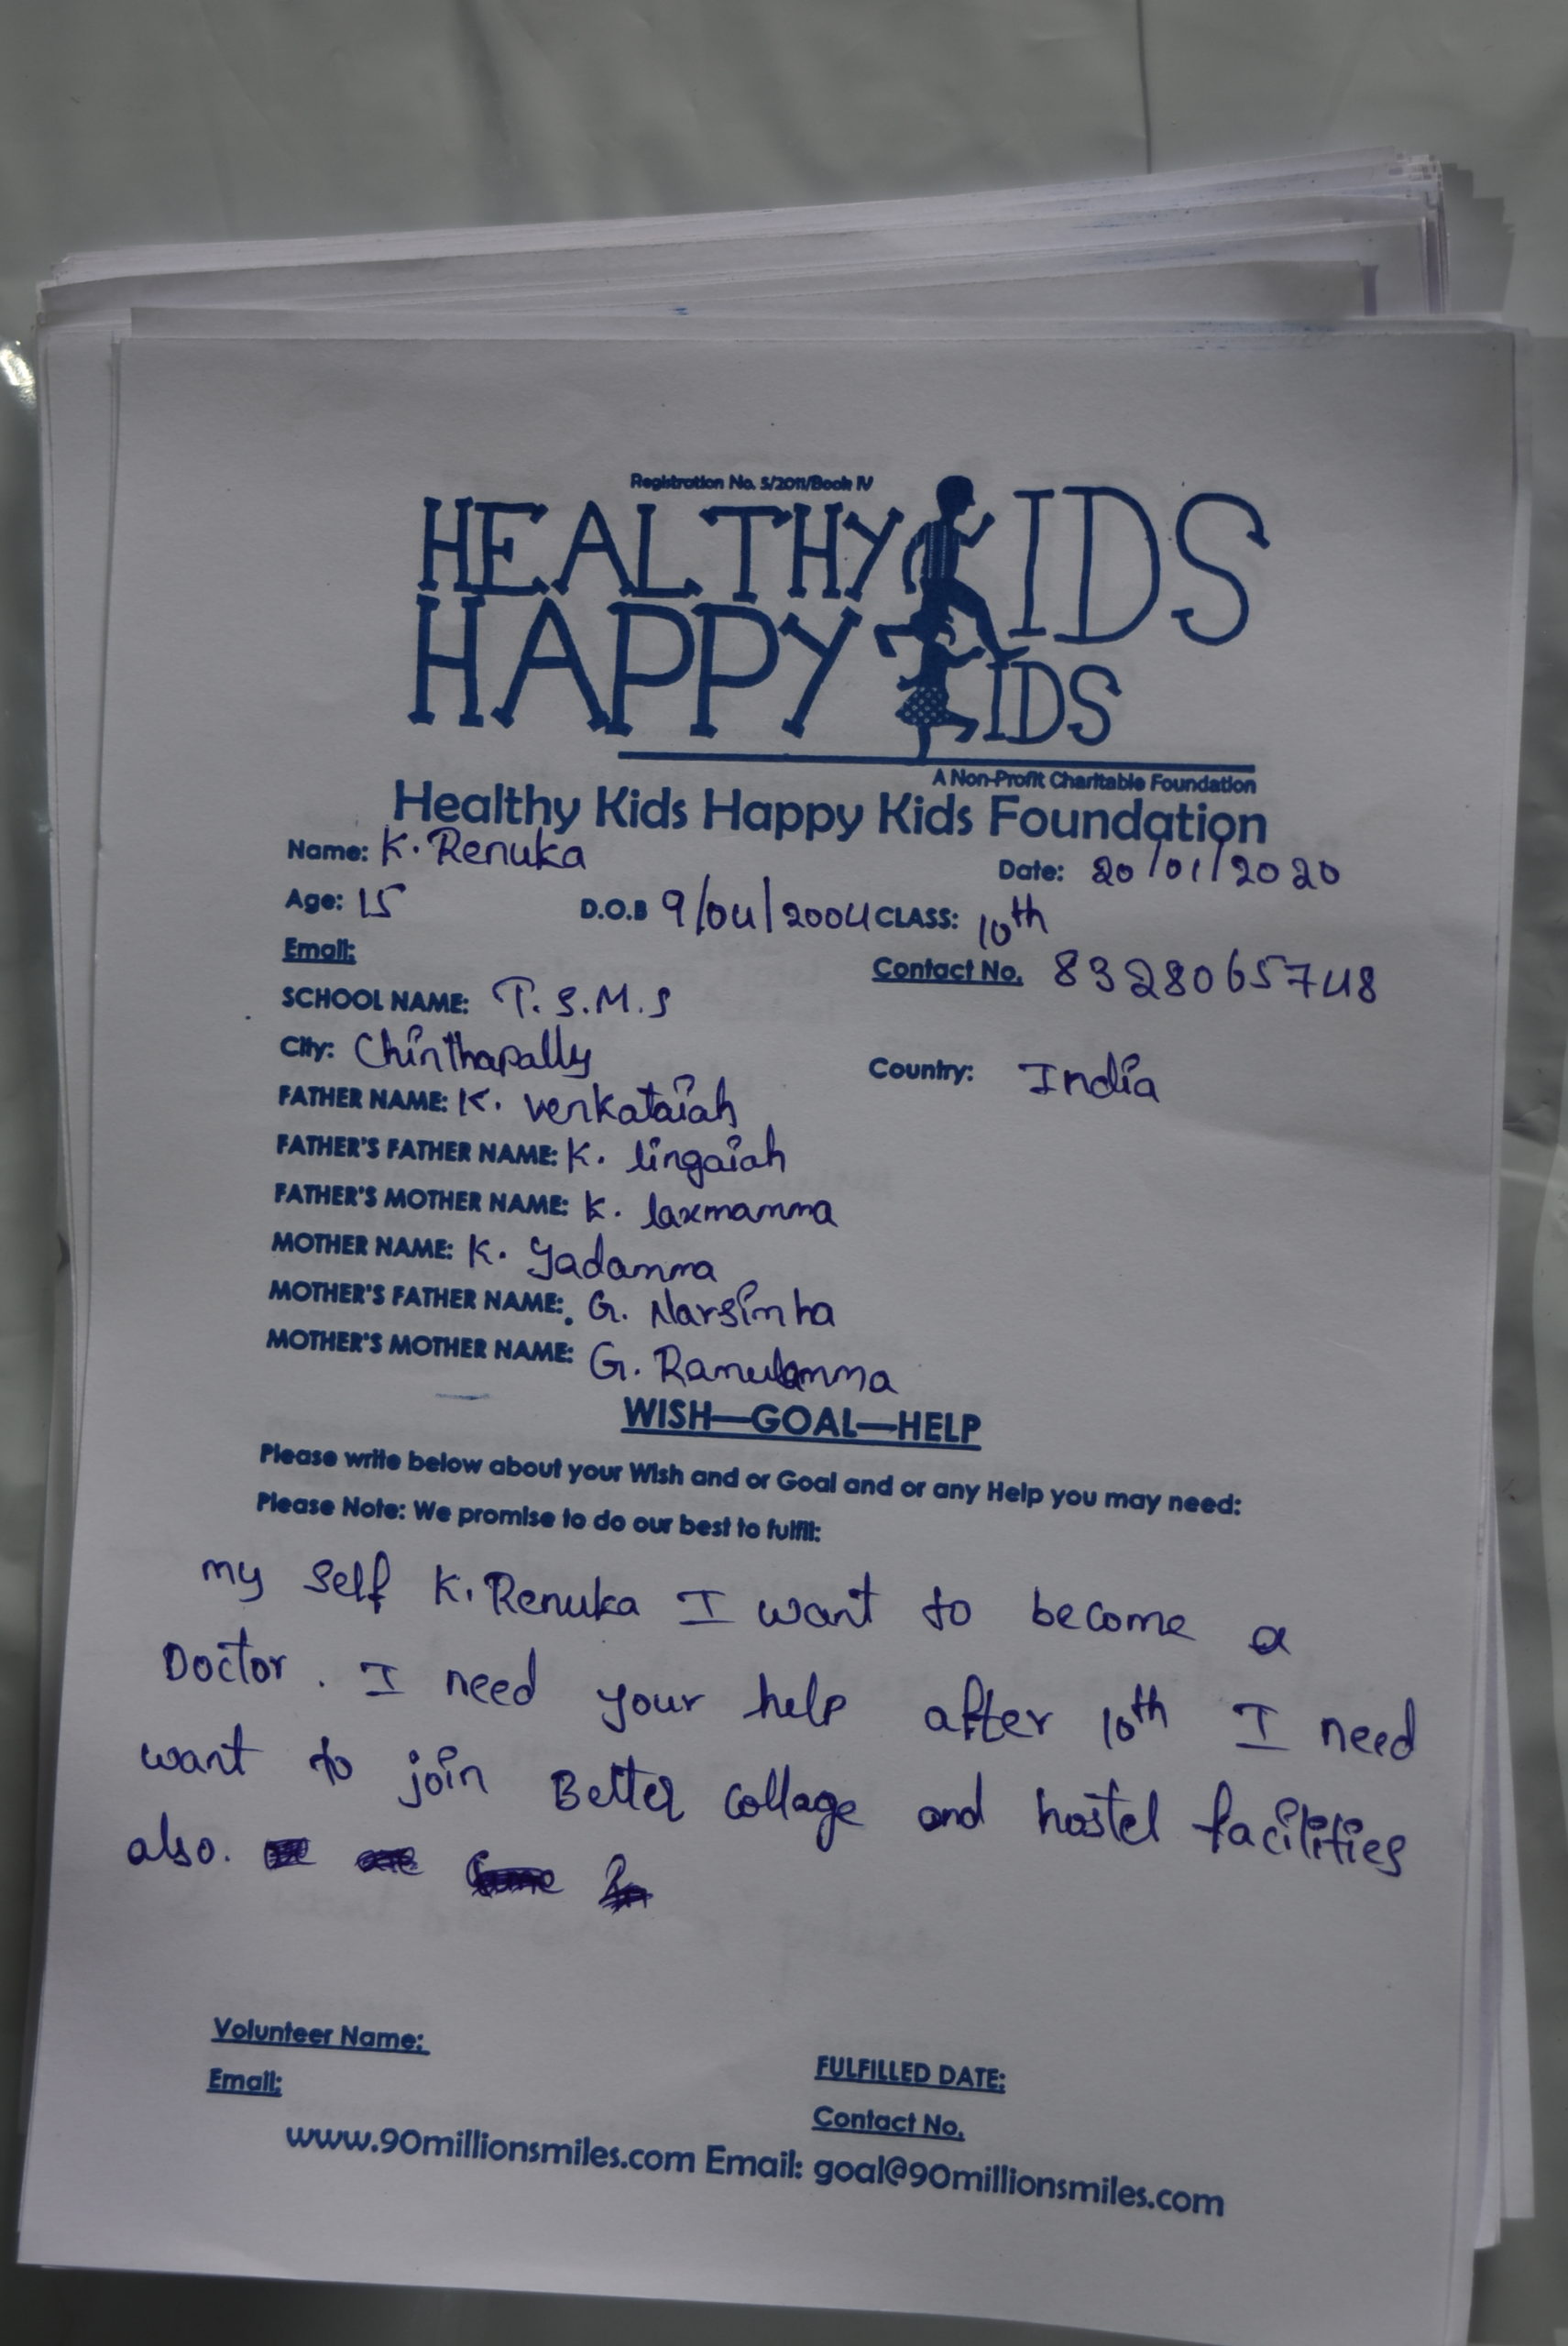 Registration No. 5/2011/Book IV
HEALTHY KIDS
HAPPY KIDS
A Non-Profit Charitable Foundation
Healthy Kids Happy Kids Foundation
Name: K. Renuka Date: 20/01/2020
Age: 15 D.O.B 9/04/2004 CLASS: 10th
Email: Contact No. 8328065748
SCHOOL NAME: T.S.M.S
City: Chinthapally Country: India
FATHER NAME: K. venkataiah
FATHER'S FATHER NAME: K. lingaiah
FATHER'S MOTHER NAME: K. laxmamma
MOTHER NAME: K. Yadamma
MOTHER'S FATHER NAME: G. Narsimha
MOTHER'S MOTHER NAME: G. Ramulamma
WISH—GOAL—HELP
Please write below about your Wish and or Goal and or any Help you may need:
Please Note: We promise to do our best to fulfil:
my self K. Renuka I want to become a
Doctor. I need your help after 10th I need
want to join Better collage and hostel facilities
also.
Volunteer Name: FULFILLED DATE:
Email: Contact No.
www.90millionsmiles.com Email: goal@90millionsmiles.com